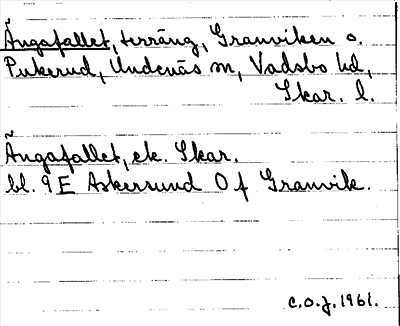 Ängafallet, terräng, Granviken o.
Pukerud, Undenäs sn, Vadsbo hd,
Skar. l.
Ängafallet, ek. Skar.
bl. 9E Askersund 0f Granvik.
C.O.J. 1961.